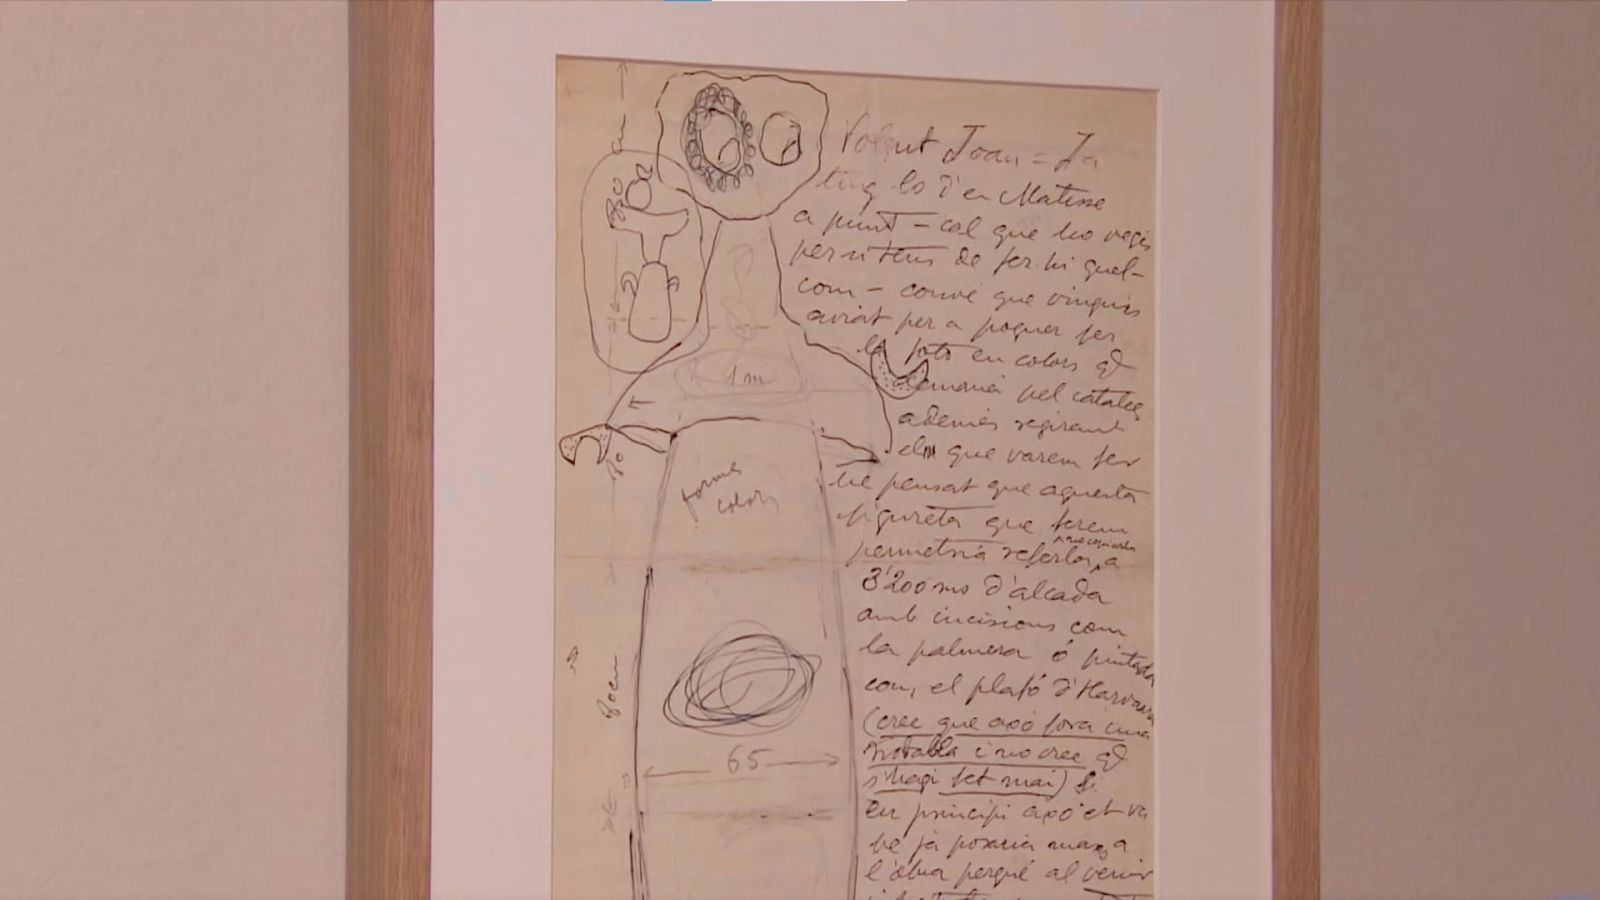 Volgut Joan = Ja
tinc lo d'en Matisse
a punt – cal que ho vegis
per si tens de fer-hi quel-
com – convé que vinguis
aviat per a poguer fer
la foto en colors qe
demana pel catalec
ademés regirant
el que varem fer
he pensat que aquesta
figureta que farem
permetria referla a
3'200 ms d'alçada
amb incisions com
la palmera ó pintada
com el plafó d'Harvard
(crec que axó fora una
i no crec qe
s'hagi fet mai) Si
en principi axó et va
bé ja posaria massa
l'obra perqué al venir
1 m.
forme
colors
80
80 cm
65